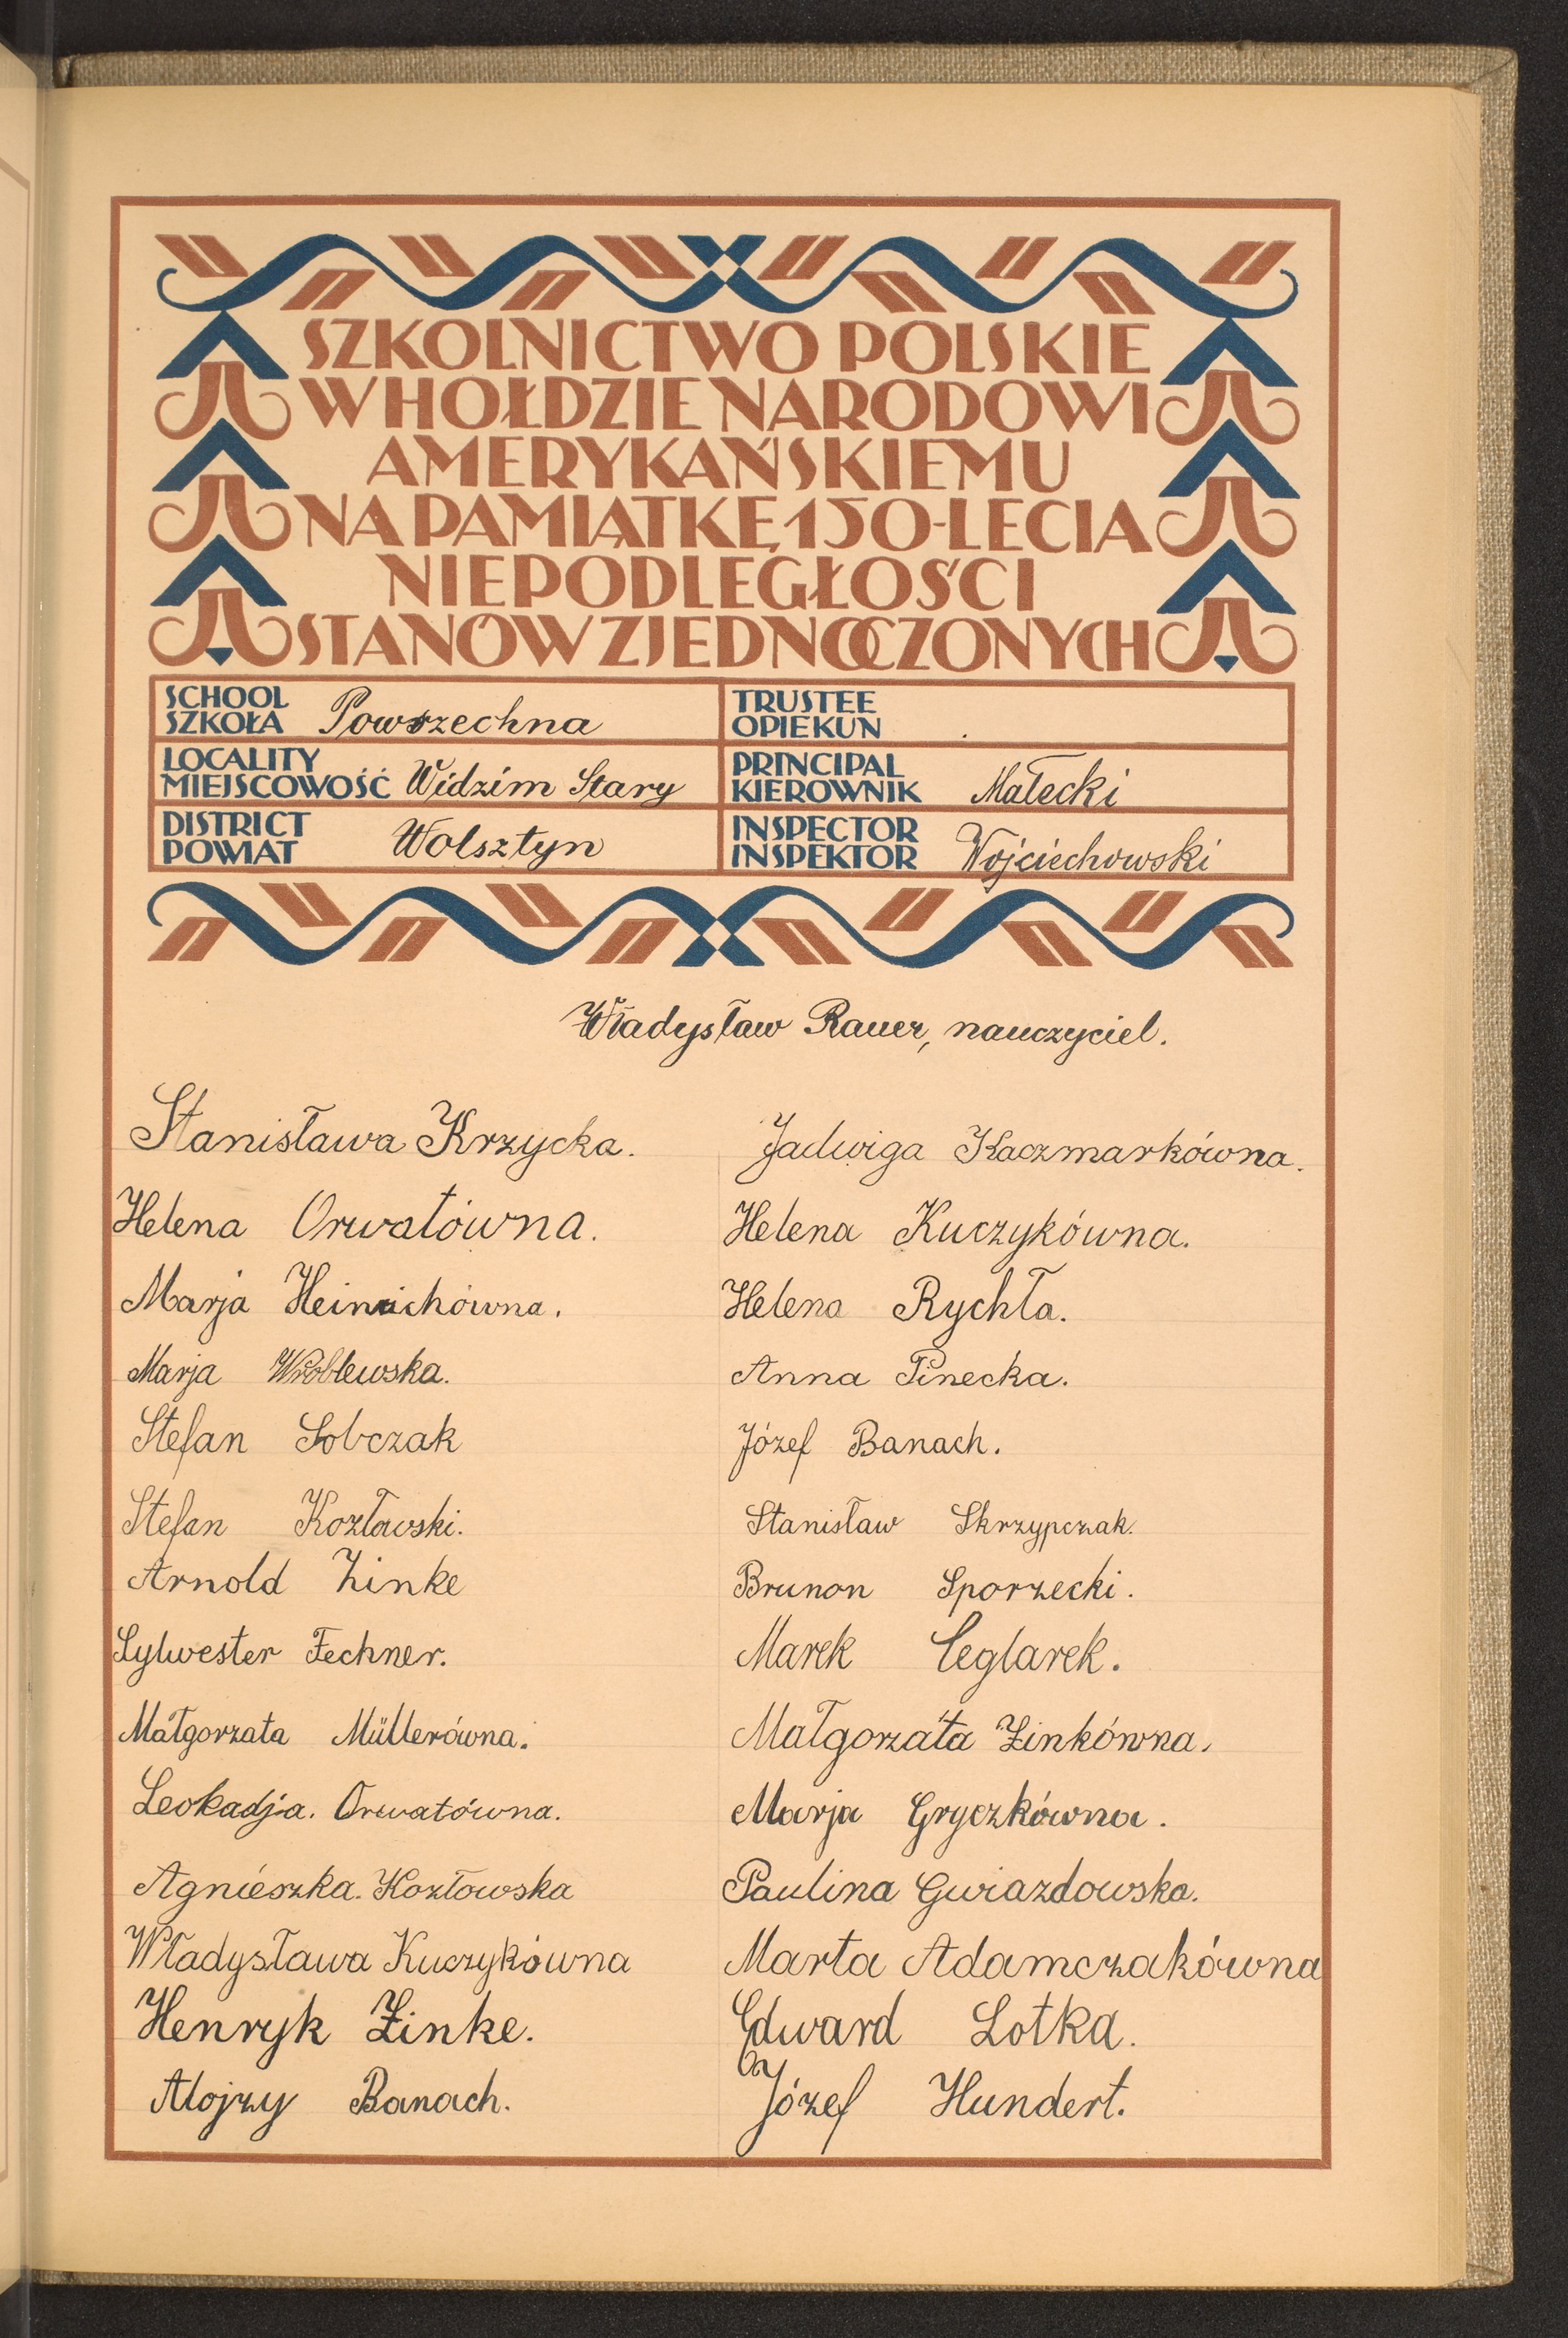 SZKOLNICTWO POLSKIE
W HOŁDZIE NARODOWI
AMERYKAŃSKIEMU
NA PAMIĄTKĘ 150-LECIA
NIEPODLEGŁOŚCI
STANÓW ZJEDNOCZONYCH
SCHOOL
SZKOŁA Powszechna
TRUSTEE
OPIEKUN
LOCALITY
MIEJSCOWOŚĆ Widzim Stary
PRINCIPAL
KIEROWNIK Małecki
DISTRICT
POWIAT Wolsztyn
INSPECTOR
INSPEKTOR Wojciechowski
Władysław Rauer, nauczyciel.
Stanisława Krzycka.
Jadwiga Kaczmarkówna.
Helena Orwatówna.
Helena Kuczykówna.
Marja Heinrichówna.
Helena Rychła.
Marja Wróblewska.
Anna Pinecka.
Stefan Sobczak
Józef Banach.
Stefan Kozłowski.
Stanisław Skrzypczak.
Arnold Zinke
Brunon Sporzecki.
Sylwester Fechner.
Marek Ceglarek.
Małgorzata Müllerówna.
Małgorzata Zinkówna.
Leokadja. Orwatówna.
Marja Gryczkówna.
Agnieszka. Kozłowska
Paulina Gwiazdowska.
Władysława Kuczykówna
Marta Adamczakówna
Henryk Zinke.
Edward Lotka.
Alojzy Banach.
Józef Hundert.